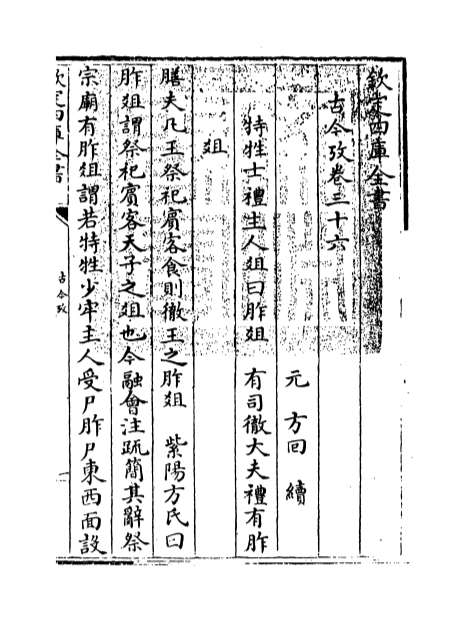 欽定四庫全書
古今攷卷三十六
元 方回 續
特牲士禮主人俎曰胙俎 有司徹大夫禮有胙
俎
膳夫凡王祭祀賓客食則徹王之胙俎 紫陽方氏曰
胙俎謂祭祀賓客天子之俎也今融會注疏簡其辭祭
宗廟有胙俎謂若特牲少牢主人受尸胙尸東西面設
欽定四庫全書
古今攷
一